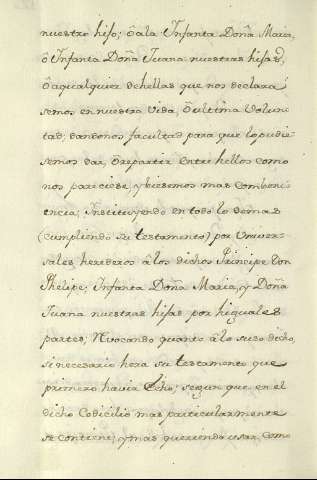 nuestro hijo; ó ala Infanta Doña Maria,
ó Infanta Doña Juana nuestras hijas,
ó aqualquier dehellas que nos declara
semos en nuestra vida, ó ultima volun
tad; dandonos facultad para que lo pudie
semos dar, ó repartir entre hellos como
nos pareciese, y biesemos mas combeni
encia; Instituyendo en todo lo demas
(cumpliendo su testamento) por Univer-
sales herederos á los dichos Principe Don
Phelipe; Infanta Doña Maria, y Doña
Juana nuestras hijas por higuales
partes; Rivocando quanto á lo suso dicho,
si necesario hera su testamento que
primero havia echo; segun que en el
dicho Codicilio mas particularmente
se contiene; y mas queriendo usar, como